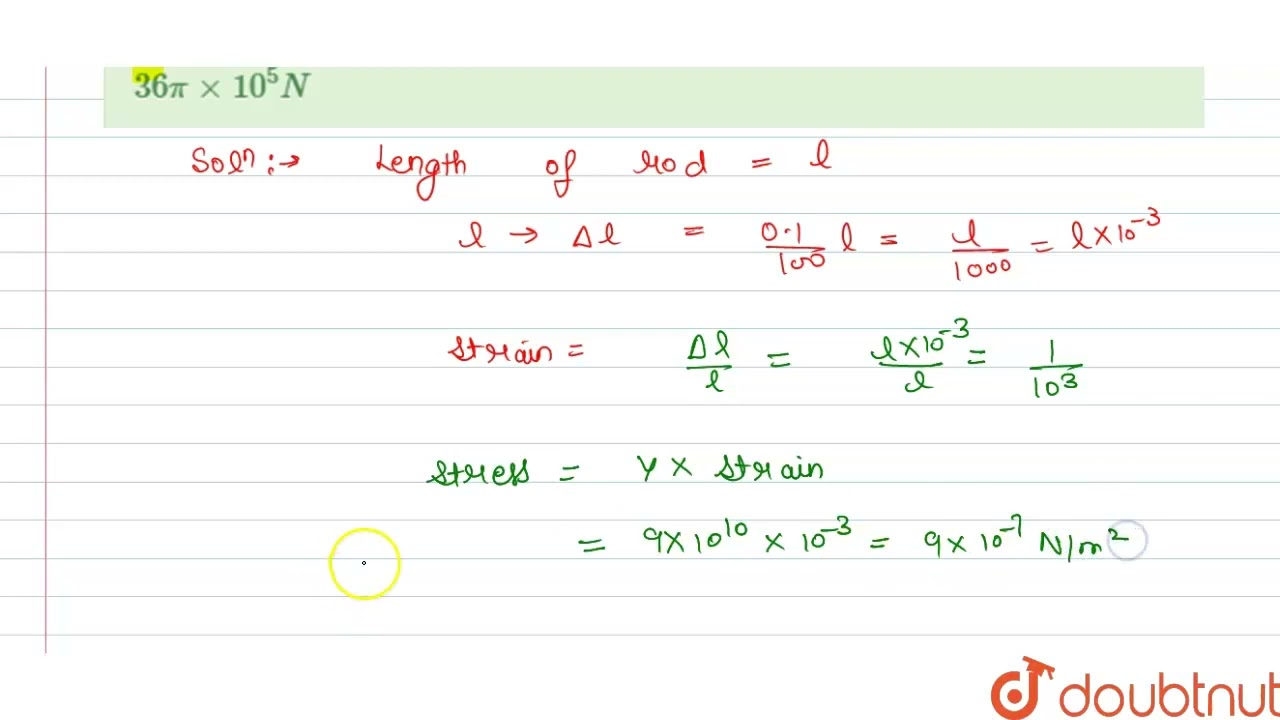 36π × 10⁵ N
Solⁿ :→ Length of rod = l
l → Δl = 0.1/100 l = l/1000 = l×10⁻³
Strain = Δl/l = l×10⁻³/l = 1/10³
Stress = Y × Strain
= 9×10¹⁰ × 10⁻³ = 9×10⁻⁷ N/m²
doubtnut